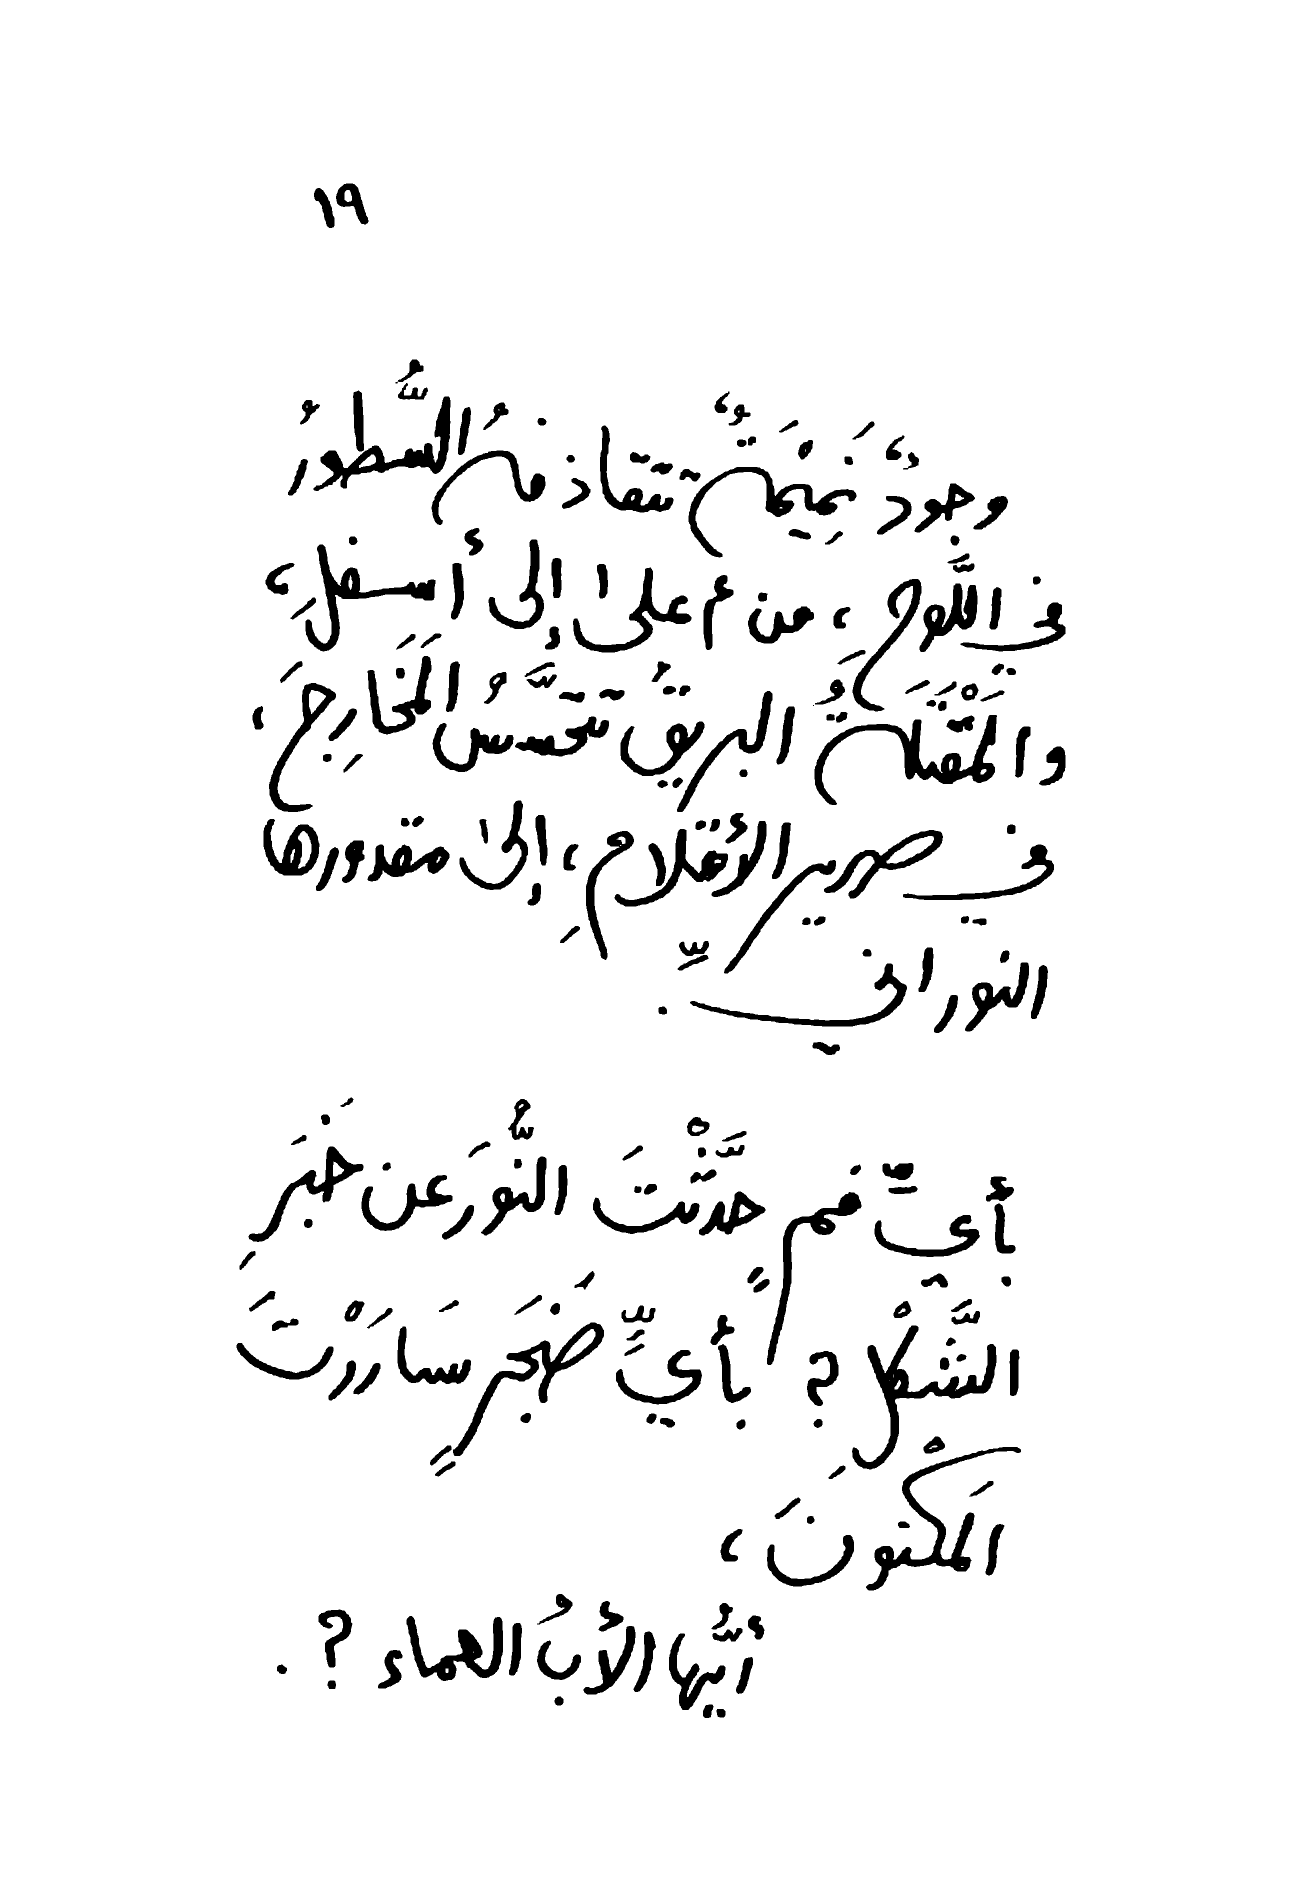 ١٩
وجودٌ نَمِيْمَةٌ تتقاذفهُ السُّطورُ
في اللَّوحِ ، من أعلى إلى أسفلِ ،
والمَقْتَلَةُ البريقُ تتحسَّسُ المَخَارِجَ ،
في صرير الأقلامِ ، إلىٰ مقدورها
النورانيِّ .
بأيِّ فمٍ حدَّثْتَ النُّورَ عن خَبَرِ
الشَّكْلِ ؟ بأيِّ ضَجَرٍ سَارَرْتَ
المَكْنونَ ،
أيُّها الأبُ العماء ؟ .